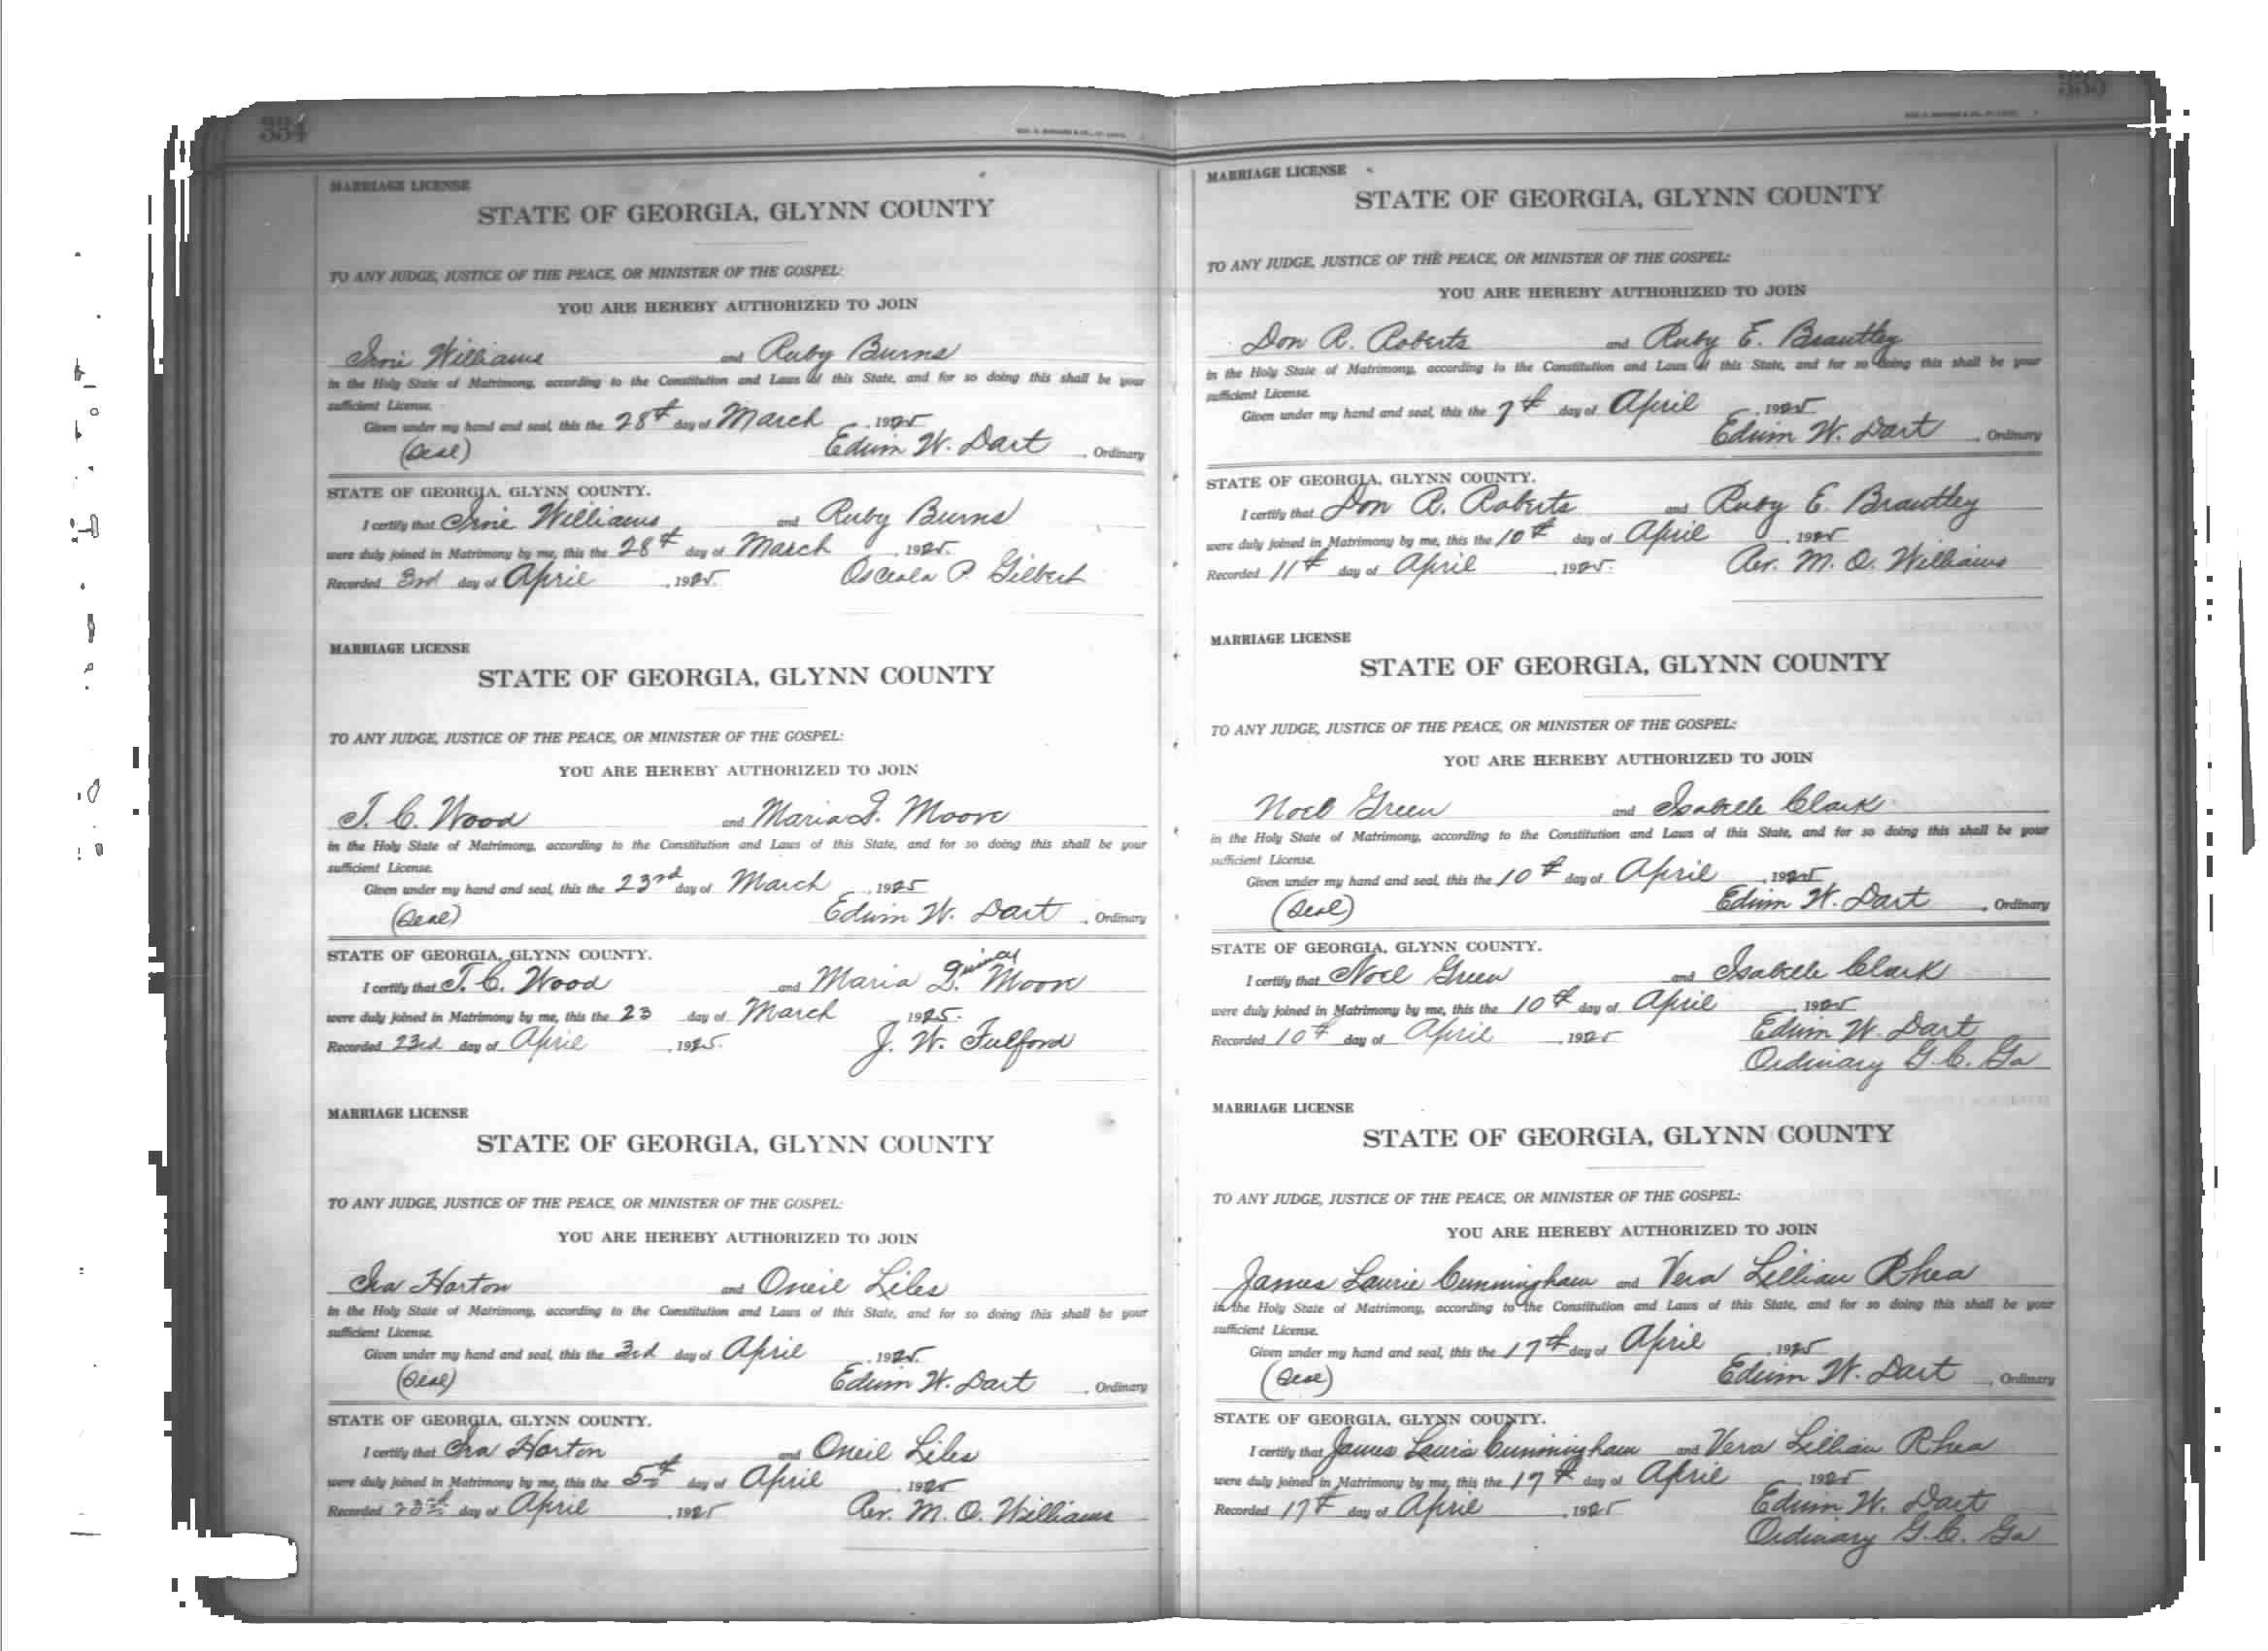 334
MARRIAGE LICENSE
STATE OF GEORGIA, GLYNN COUNTY
TO ANY JUDGE, JUSTICE OF THE PEACE, OR MINISTER OF THE GOSPEL:
YOU ARE HEREBY AUTHORIZED TO JOIN
Williams and Ruby Burns
in the Holy State of Matrimony, according to the Constitution and Laws of this State, and for so doing this shall be your
sufficient License.
Given under my hand and seal, this the 28th day of March, 1925
(Seal) Edwin W. Dart, Ordinary
STATE OF GEORGIA, GLYNN COUNTY.
I certify that Williams and Ruby Burns
were duly joined in Matrimony by me, this the 28th day of March, 1925.
Recorded 3rd day of April, 1925. Osceola P. Gilbert
MARRIAGE LICENSE
STATE OF GEORGIA, GLYNN COUNTY
TO ANY JUDGE, JUSTICE OF THE PEACE, OR MINISTER OF THE GOSPEL:
YOU ARE HEREBY AUTHORIZED TO JOIN
T. C. Wood and Maria Q. Moore
in the Holy State of Matrimony, according to the Constitution and Laws of this State, and for so doing this shall be your
sufficient License.
Given under my hand and seal, this the 23rd day of March, 1925
(Seal) Edwin W. Dart, Ordinary
STATE OF GEORGIA, GLYNN COUNTY.
I certify that T. C. Wood and Maria Quincy Moore
were duly joined in Matrimony by me, this the 23 day of March 1925.
Recorded 23rd day of April, 1925. J. W. Fulford
MARRIAGE LICENSE
STATE OF GEORGIA, GLYNN COUNTY
TO ANY JUDGE, JUSTICE OF THE PEACE, OR MINISTER OF THE GOSPEL:
YOU ARE HEREBY AUTHORIZED TO JOIN
Ira Horton and Oneil Liles
in the Holy State of Matrimony, according to the Constitution and Laws of this State, and for so doing this shall be your
sufficient License.
Given under my hand and seal, this the 3rd day of April, 1925.
(Seal) Edwin W. Dart, Ordinary
STATE OF GEORGIA, GLYNN COUNTY.
I certify that Ira Horton and Oneil Liles
were duly joined in Matrimony by me, this the 5th day of April, 1925
Recorded 23rd day of April, 1925 Rev. M. O. Williams
335
MARRIAGE LICENSE
STATE OF GEORGIA, GLYNN COUNTY
TO ANY JUDGE, JUSTICE OF THE PEACE, OR MINISTER OF THE GOSPEL:
YOU ARE HEREBY AUTHORIZED TO JOIN
Don R. Roberts and Ruby E. Brantley
in the Holy State of Matrimony, according to the Constitution and Laws of this State, and for so doing this shall be your
sufficient License.
Given under my hand and seal, this the 7th day of April, 1925
Edwin W. Dart, Ordinary
STATE OF GEORGIA, GLYNN COUNTY.
I certify that Don R. Roberts and Ruby E. Brantley
were duly joined in Matrimony by me, this the 10th day of April, 1925
Recorded 11th day of April, 1925. Rev. M. O. Williams
MARRIAGE LICENSE
STATE OF GEORGIA, GLYNN COUNTY
TO ANY JUDGE, JUSTICE OF THE PEACE, OR MINISTER OF THE GOSPEL:
YOU ARE HEREBY AUTHORIZED TO JOIN
Noel Green and Isabelle Clark
in the Holy State of Matrimony, according to the Constitution and Laws of this State, and for so doing this shall be your
sufficient License.
Given under my hand and seal, this the 10th day of April, 1925
(Seal) Edwin W. Dart, Ordinary
STATE OF GEORGIA, GLYNN COUNTY.
I certify that Noel Green and Isabelle Clark
were duly joined in Matrimony by me, this the 10th day of April, 1925
Recorded 10th day of April, 1925 Edwin W. Dart
Ordinary G.C. Ga
MARRIAGE LICENSE
STATE OF GEORGIA, GLYNN COUNTY
TO ANY JUDGE, JUSTICE OF THE PEACE, OR MINISTER OF THE GOSPEL:
YOU ARE HEREBY AUTHORIZED TO JOIN
James Laurie Cunningham and Vera Lillian Rhea
in the Holy State of Matrimony, according to the Constitution and Laws of this State, and for so doing this shall be your
sufficient License.
Given under my hand and seal, this the 17th day of April, 1925
(Seal) Edwin W. Dart, Ordinary
STATE OF GEORGIA, GLYNN COUNTY.
I certify that James Laurie Cunningham and Vera Lillian Rhea
were duly joined in Matrimony by me, this the 17th day of April, 1925
Recorded 17th day of April, 1925 Edwin W. Dart
Ordinary G.C. Ga